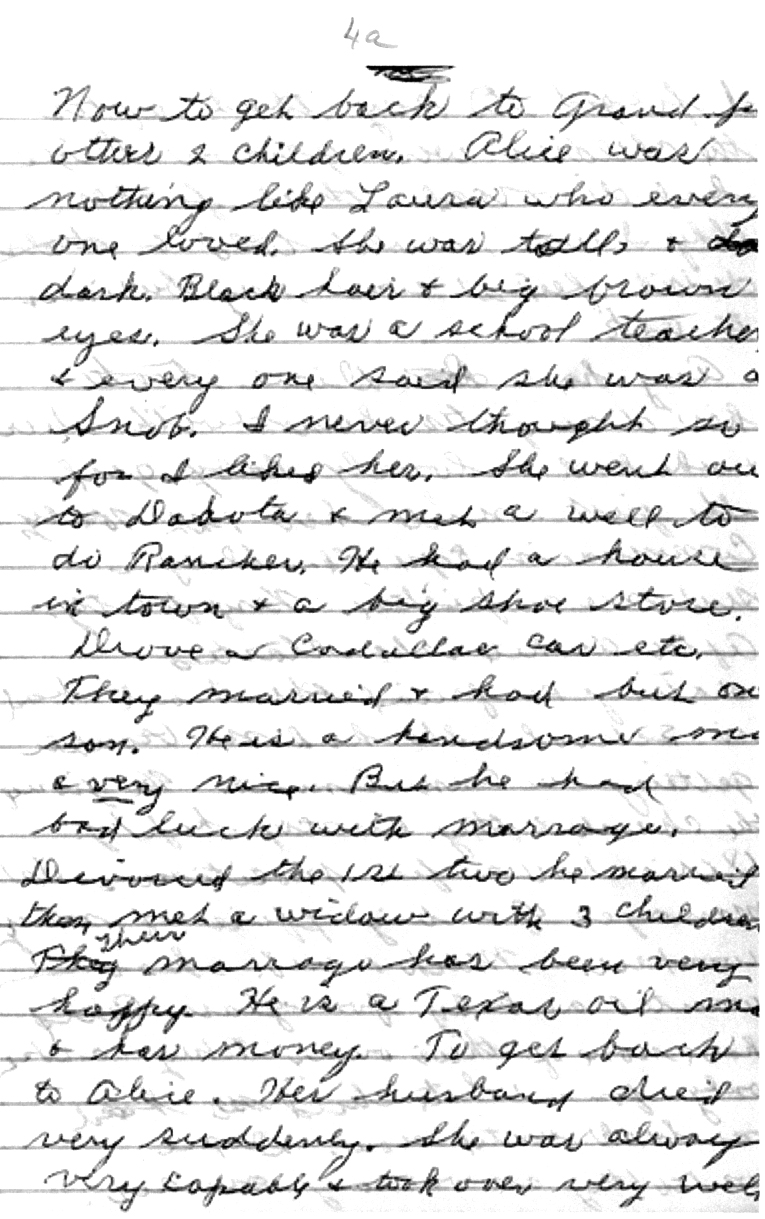 4a
Now to get back to Grand f
others 2 children. Alice was
nothing like Laura who every
one loved. She was tall, &
dark. Black hair & big brown
eyes. She was a school teache
& every one said she was a
Snob. I never thought so
for I liked her. She went ou
to Dakota & met a well to
do Rancher. He had a house
in town & a big shoe store.
Drove a Cadallac car etc.
They married & had but on
son. He is a handsome ma
& very nice. But he had
bad luck with marrage.
Divorced the 1st two he married
then met a widow with 3 children
Their
marrage has been very
happy. He is a Texas oil ma
& has money. To get back
to Alice. Her husband died
very suddenly. She was alway
very capable & took over very well